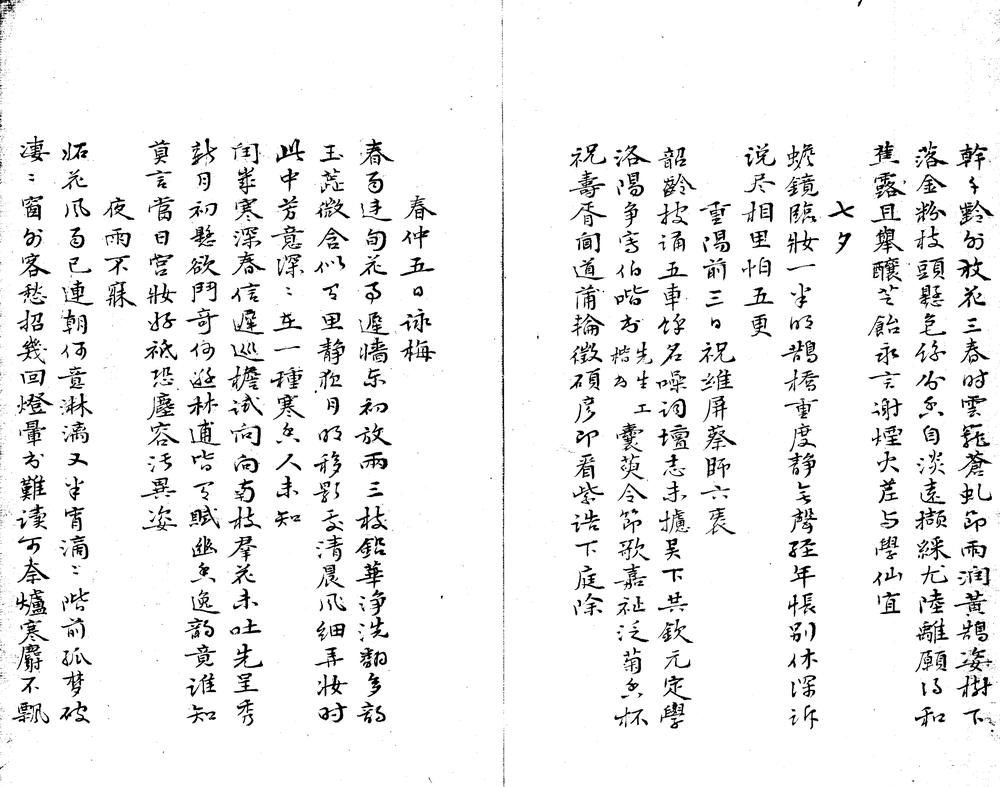 幹千齡始放花三春时雲籠蒼虬節雨润黃鵠姿樹下
落金粉枝頭懸色絲分香自淡遠擷綵尤陸離願得和
蕉露且舉釀芝飴永言谢煙火差与學仙宜
七夕
蟾鏡臨妝一半明鵲橋重度静无聲经年悵别休深訴
说尽相思怕五更
重陽前三日祝維屏蔡師六袠
韶齡枝诵五車馀名噪词壇志未攄吴下共欽元定學
洛陽争写伯喈书先生工楷书囊萸令節歌嘉祉泛菊香杯
祝壽胥佪道蒲輪徵碩彦即看紫诰下庭除
春仲五日詠梅
春雨连旬花事遲墙东初放兩三枝鉛華浄洗翻多韵
玉蕊微含似有思静夜月明移影处清晨风细弄妝时
此中芳意深〻在一種寒香人未知
闰岁寒深春信遲巡檐试向向南枝羣花未吐先呈秀
新月初懸欲鬥奇何遜林逋皆有賦幽香逸韵竟谁知
莫言當日宮妝好祇恐塵容污異姿
夜雨不寐
妬花风雨已連朝何意淋漓又半宵滴〻階前孤梦破
淒〻窗外客愁招幾回燈暈书難读可奈爐寒麝不飄